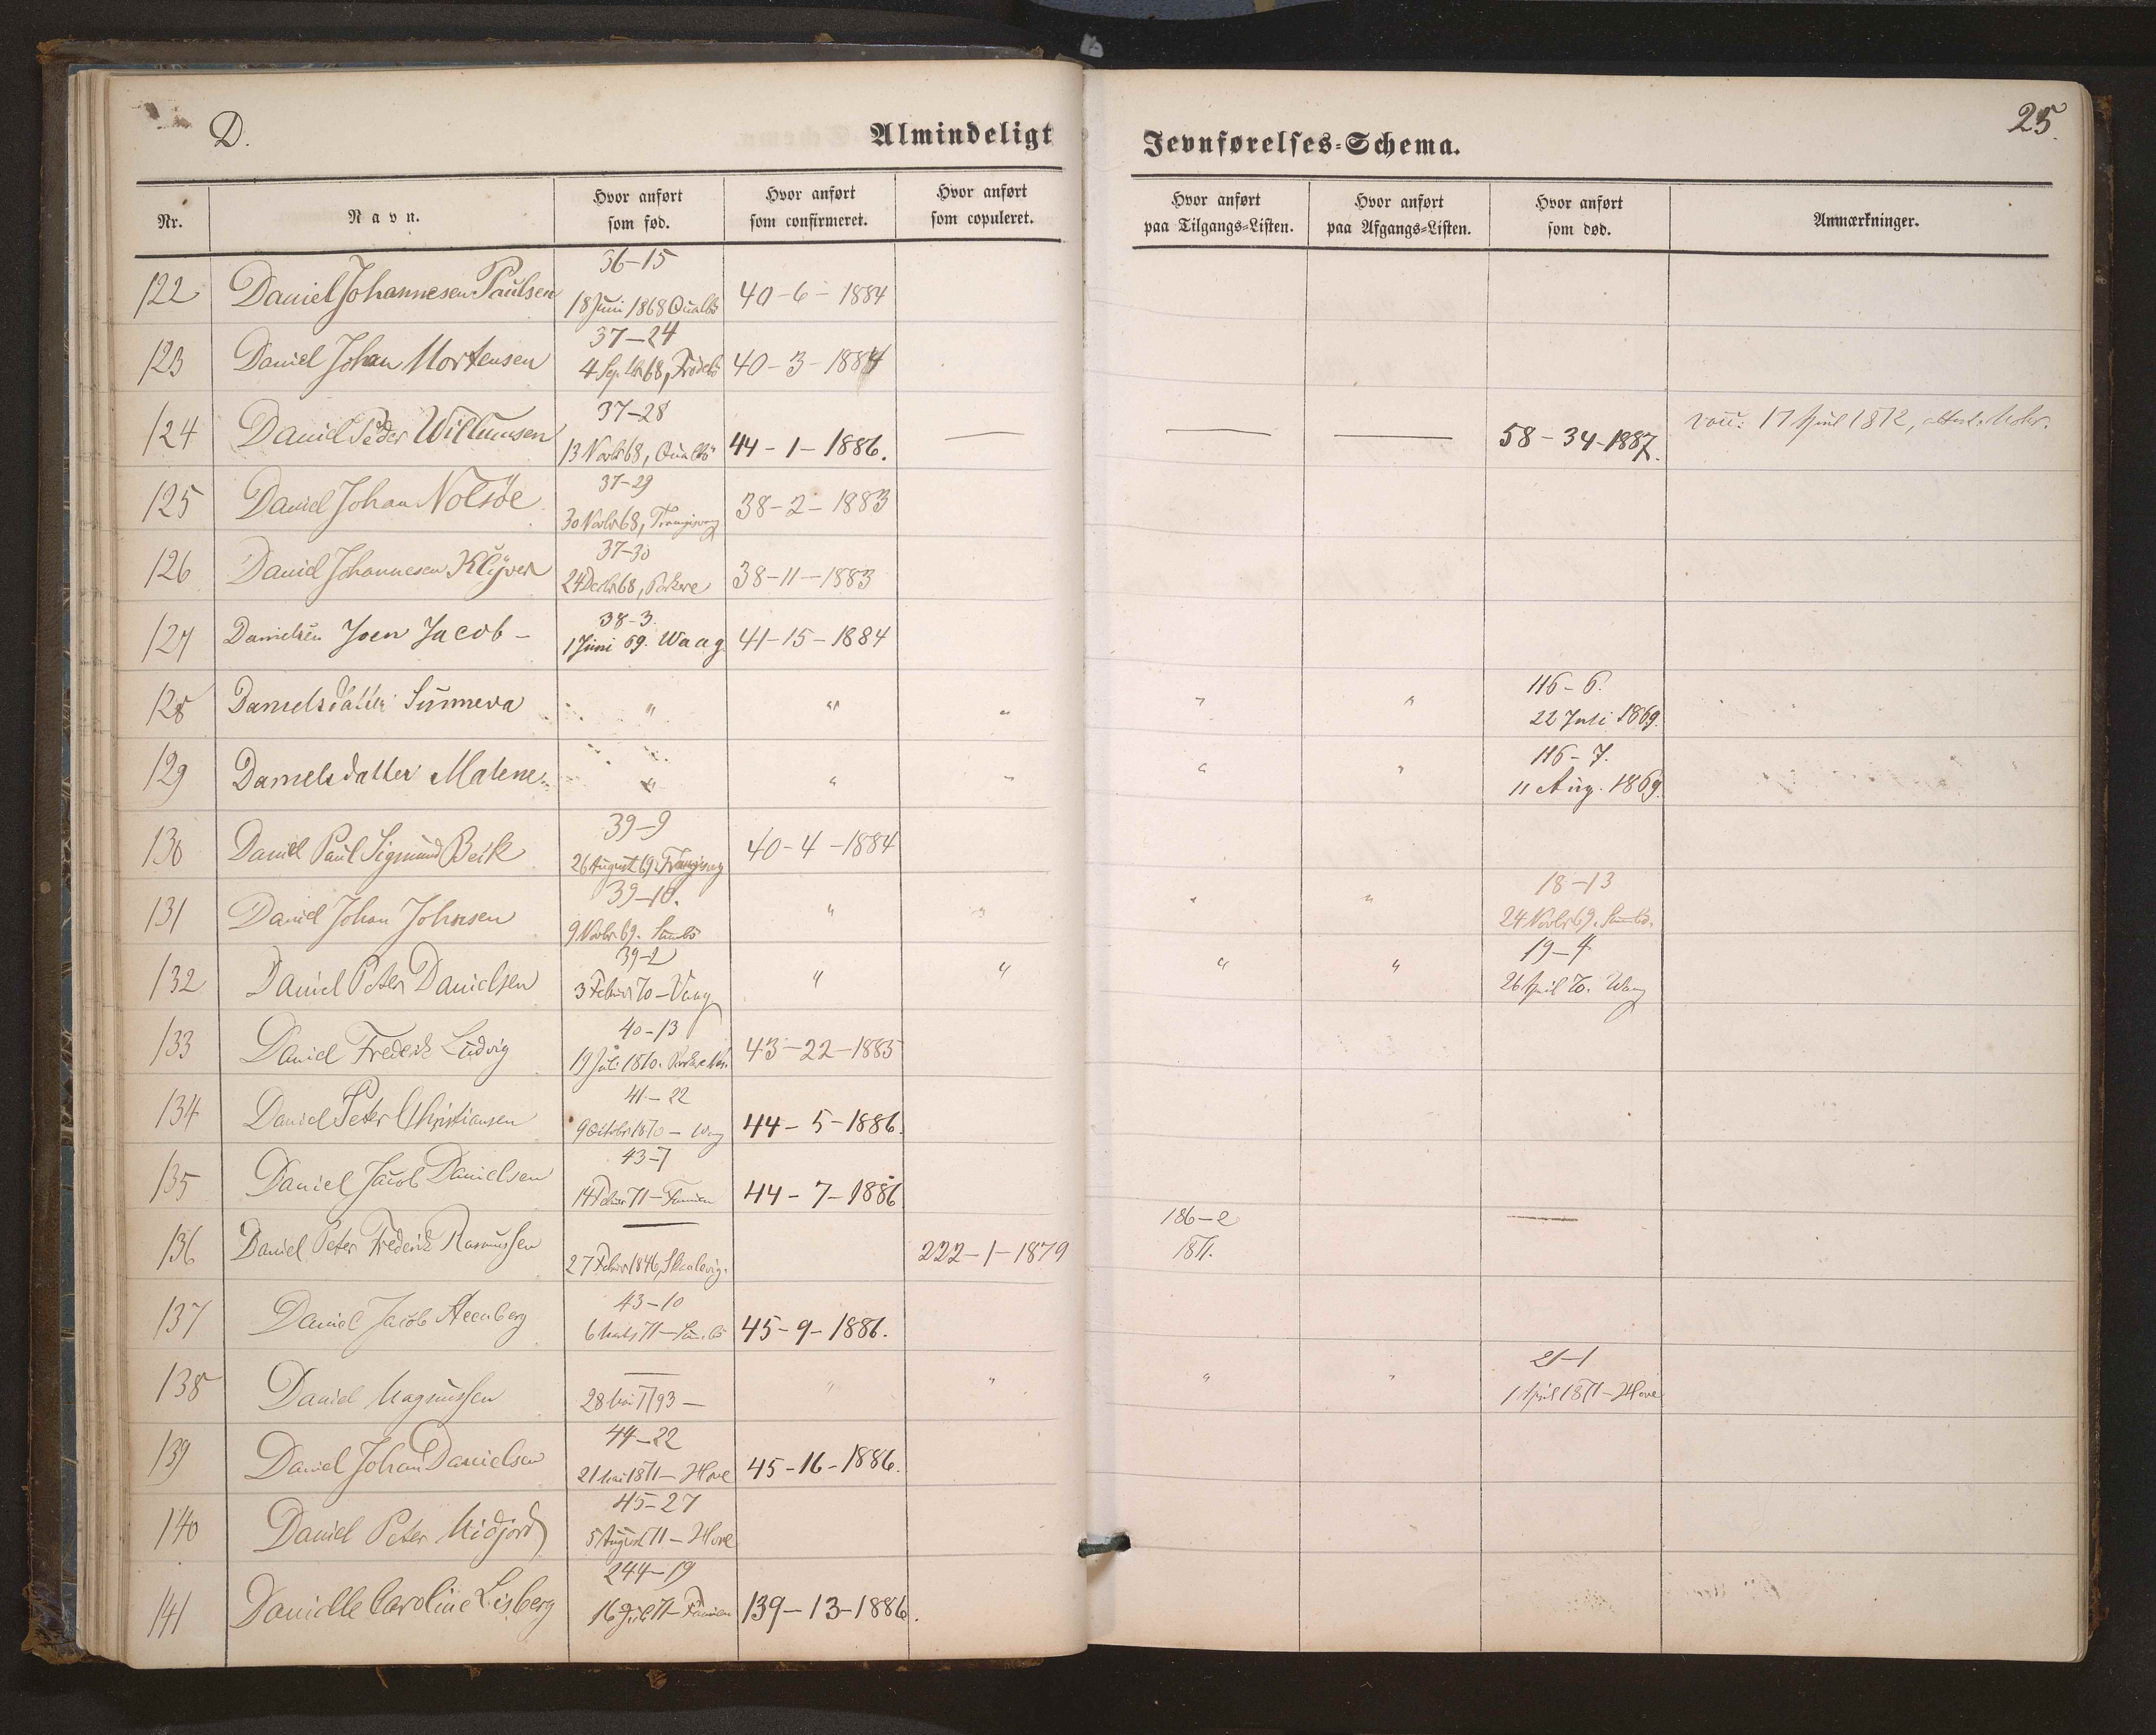 D.
Almindeligt Jevnførelses-Schema.
25.
Nr. Navn. Hvor anført som fød. Hvor anført som confirmeret. Hvor anført som copuleret. Hvor anført paa Tilgangs-Listen. Hvor anført paa Afgangs-Listen. Hvor anført som død. Anmærkninger.
36-15
122 Daniel Johannesen Paulsen 18 Juni 1868 Qualbö 40-6-1884
37-24
123 Daniel Johan Mortensen 4 Sep. 68, Frodebö 40-3-1884
37-28
124 Daniel Peder Willumsen 13 Novbr 68, Qualbö 44-1-1886. — — — 58-34-1887. vacc: 17 April 1872, attest. Mohr.
37-29
125 Daniel Johan Nolsöe 30 Novbr 68, Trangisvaag 38-2-1883
37-30
126 Daniel Johannesen Klÿver 24 Decbr 68, Porkere 38-11-1883
38-3.
127 Danielsen Joen Jacob - 1 Juni 69. Waag 41-15-1884
116-6.
128 Danielsdatter Sunneva " " " " " 22 Juli 1869.
116-7.
129 Danielsdatter Malene " " " " " 11 Aug. 1869.
39-9
130 Daniel Paul Sigmund Beck 26 August 69, Trangisvag 40-4-1884
39-10. 18-13
131 Daniel Johan Johnsen 9 Novbr 69. Sumbö " " " " 24 Novbr 69. Sumbö.
39-2 19-4
132 Daniel Peter Danielsen 3 Februr 70-Vaag " " " " 26 April 70. Waag
40-13
133 Daniel Frederik Ludvig 19 Juli 1870. 43-22-1885
41-22
134 Daniel Peter Christiansen 9 Octobr 1870 - Waag 44-5-1886.
43-7
135 Daniel Jacob Danielsen 14 Februr 71 - Famien 44-7-1886
— 186-2 —
136 Daniel Peter Frederik Rasmussen 27 Februr 1846, Skaalevig. 222-1-1879 1871.
43-10
137 Daniel Jacob Steenberg 6 Marts 71 - Sumbö 45-9-1886.
— 21-1
138 Daniel Magnussen 28 Mai 1793 - " " " " 1 April 1871 - Hove
44-22
139 Daniel Johan Danielsen 21 Mai 1871 - Hove 45-16-1886.
45-27
140 Daniel Peter Midjord 5 August 71 - Hove
244-19
141 Danielle Caroline Lisberg 16 Juli 71 - Famien 139-13-1886.